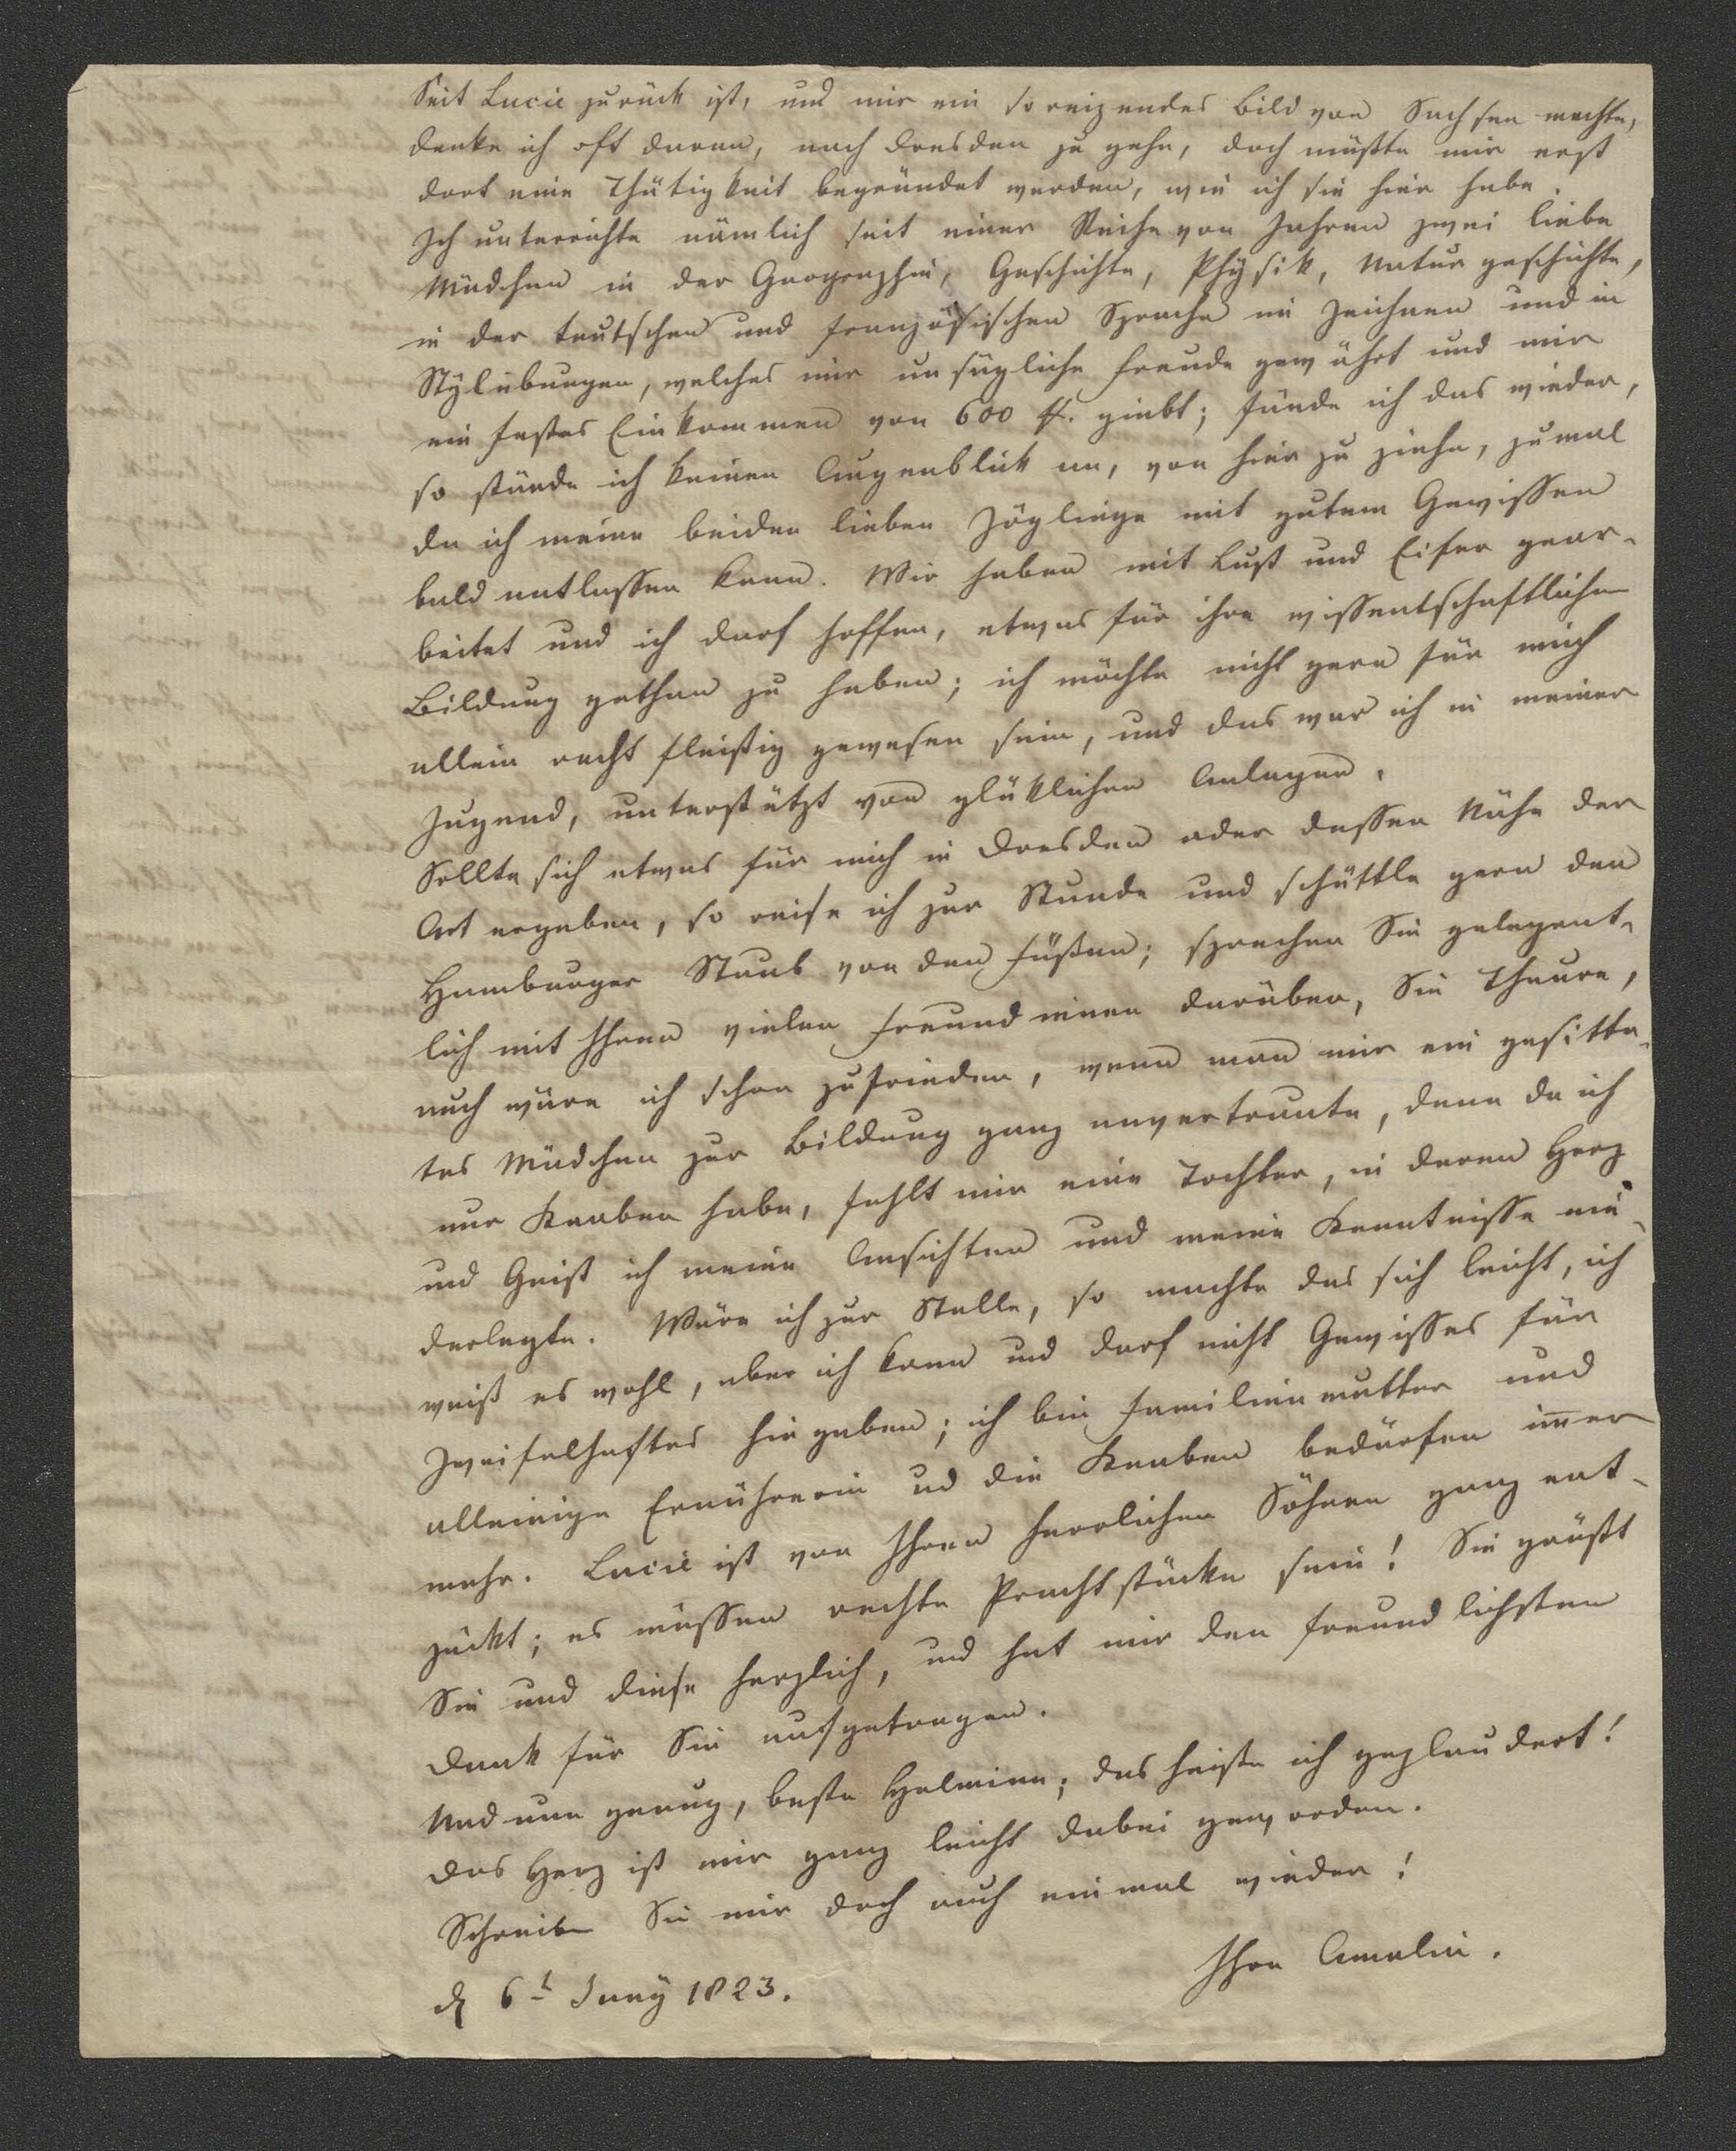 Seit Lucie zurück ist, und mir ein so reizendes Bild von Sachsen machte,
denke ich oft daran, nach Dresden zu gehn, doch müßte mir erst
dort eine Thätigkeit begründet werden, wie ich sie hier habe.
Ich unterrichte nämlich seit einer Reihe von Jahren zwei liebe
Mädchen in der Geographie, Geschichte, Physik, Naturgeschichte,
in der teutschen und französischen Sprache im Zeichnen und in
Stylübungen, welches mir unsägliche Freude gewährt und mir
ein festes Einkommen von 600 giebt; fände ich das wieder,
so stünde ich keinen Augenblick an, von hier zu ziehn, zumal
da ich meine beiden lieben Zöglinge mit gutem Gewissen
bald entlassen kann. Wir haben mit Lust und Eifer gear-
beitet und ich darf hoffen, etwas für ihre wissentschaftliche
Bildung gethan zu haben; ich möchte nicht gern für mich
allein recht fleißig gewesen sein, und das war ich in meiner
Jugend, unterstützt von glüklichen Anlagen.
Sollte sich etwas für mich in Dresden oder dessen Nähe der
Art ergeben, so reise ich zur Stunde und schüttle gern den
Hamburger Staub von den Füßen; sprechen Sie gelegent-
lich mit Ihren vielen Freundinnen darüber, Sie Theure,
auch wäre ich schon zufrieden, wenn man mir ein gesitte-
tes Mädchen zur Bildung ganz anvertraute, denn da ich
nur Knaben habe, fehlt mir eine Tochter, in deren Herz
und Geist ich meine Ansichten und meine Kenntnisse nie-
derlegte. Wäre ich zur Stelle, so machte das sich leicht, ich
weiß es wohl, aber ich kann und darf nicht Gewisses für
Zweifelhaftes hingeben; ich bin Familienmutter und
alleinige Ernährerin ud die Knaben bedürfen im̅er
mehr. Lucie ist von Ihren herrlichen Söhnen ganz ent-
zückt; es müssen rechte Prachtstücke sein! Sie grüßt
Sie und diese herzlich, und hat mir den freundlichsten
Dank für Sie aufgetragen.
Und nun genug, beste Helmina; das heiße ich geplaudert!
Das Herz ist mir ganz leicht dabei geworden.
Schreiben Sie mir doch auch einmal wieder!
Ihre Amalie.
d 6t Juny 1823.